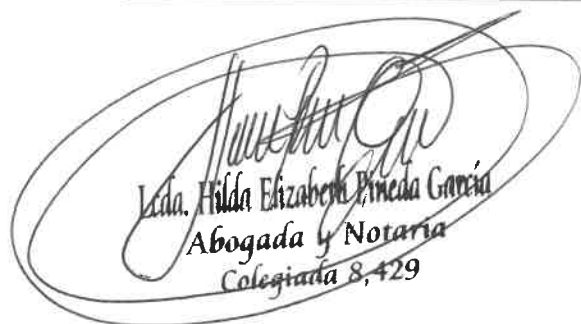 Lcda. Hilda Elizabeth Pineda García
Abogada y Notaria
Colegiada 8,429